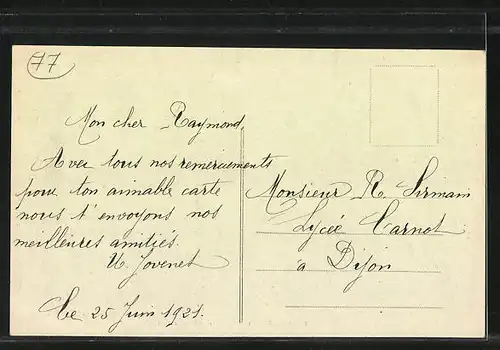 77
Mon cher Raymond,
Avec tous nos remerciements
pour ton aimable carte
nous t'envoyons nos
meilleures amitiés.
U. Jovenet
Le 25 Juin 1921.
Monsieur R. Sirmain
Lycée Carnot
à Dijon